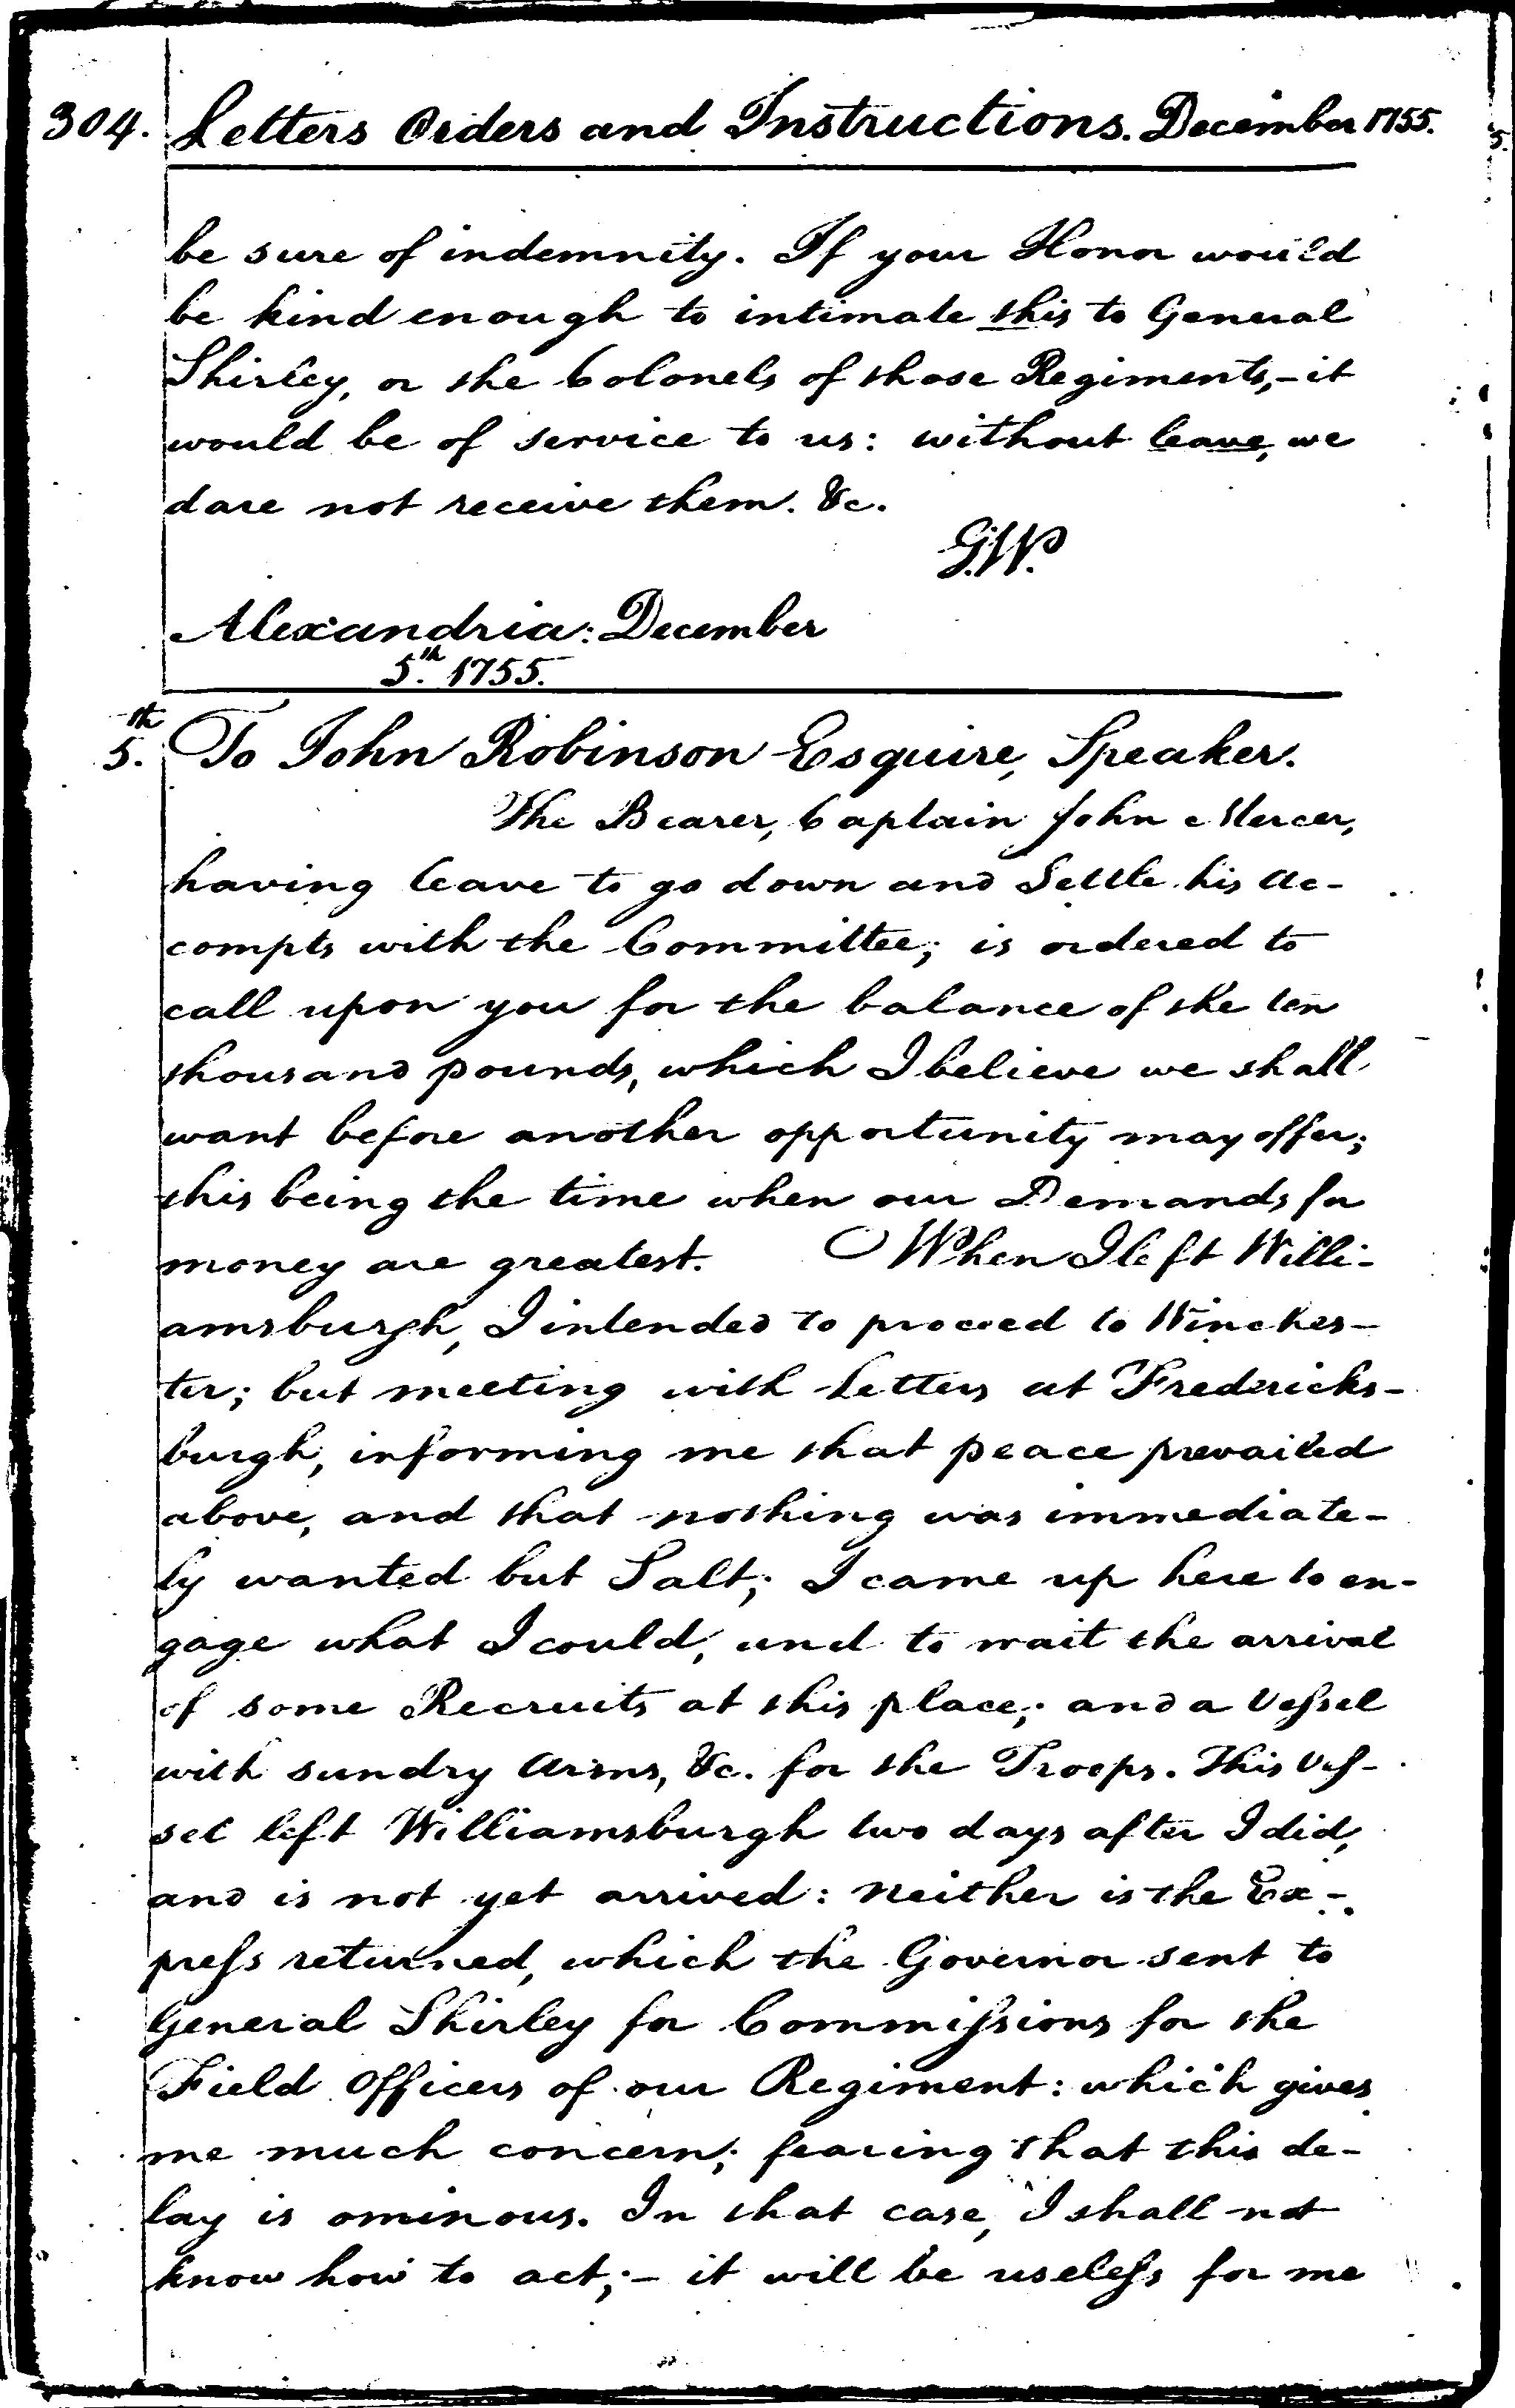 304. Letters Orders and Instructions. December 1755.
be sure of indemnity. If your Honor would
be kind enough to intimate this to General
Shirley, or the Colonels of those Regiments,-it
would be of service to us: without leave, we
dare not receive them. &c.
G.W.
Alexandria: December
5th. 1755.
5th. To John Robinson Esquire, Speaker.
The Bearer, Captain John Mercer,
having leave to go down and Settle his Ac-
compts with the Committee; is ordered to
call upon you for the balance of the ten
thousand pounds, which I believe we shall
want before another opportunity may offer;
this being the time when our Demands for
money are greatest. When I left Willi-
amsburgh, I intended to proceed to Winches-
ter; but meeting with Letters at Fredericks-
burgh, informing me that peace prevailed
above, and that nothing was immediate-
ly wanted but Salt; I came up here to en-
gage what I could, and to wait the arrival
of some Recruits at this place; and a Vessel
with sundry Arms, &c. for the Troops. This Ves-
sel left Williamsburgh two days after I did,
and is not yet arrived: neither is the Ex-
press returned, which the Governor sent to
General Shirley for Commissions for the
Field Officers of our Regiment: which gives
me much concern; fearing that this de-
lay is ominous. In that case, I shall not
know how to act;- it will be useless for me